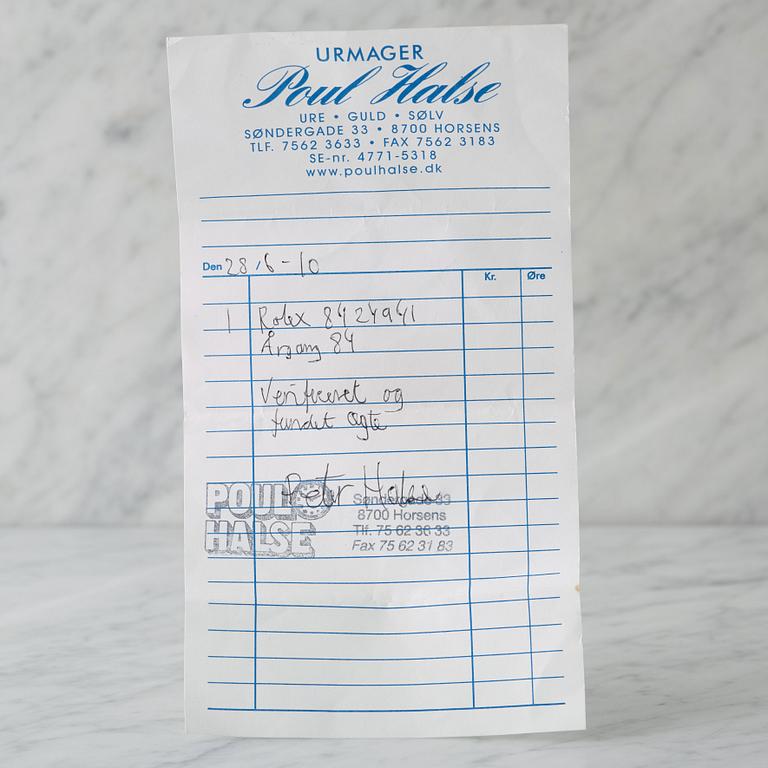 URMAGER
Poul Halse
URE • GULD • SØLV
SØNDERGADE 33 • 8700 HORSENS
TLF. 7562 3633 • FAX 7562 3183
SE-nr. 4771-5318
www.poulhalse.dk
Den 28/6-10
Kr. Øre
1 Rolex 8424941
Årgang 84
Verificeret og
fundet ægte
Peter Halse
POUL HALSE
Søndergade 33
8700 Horsens
Tlf. 75 62 36 33
Fax 75 62 31 83